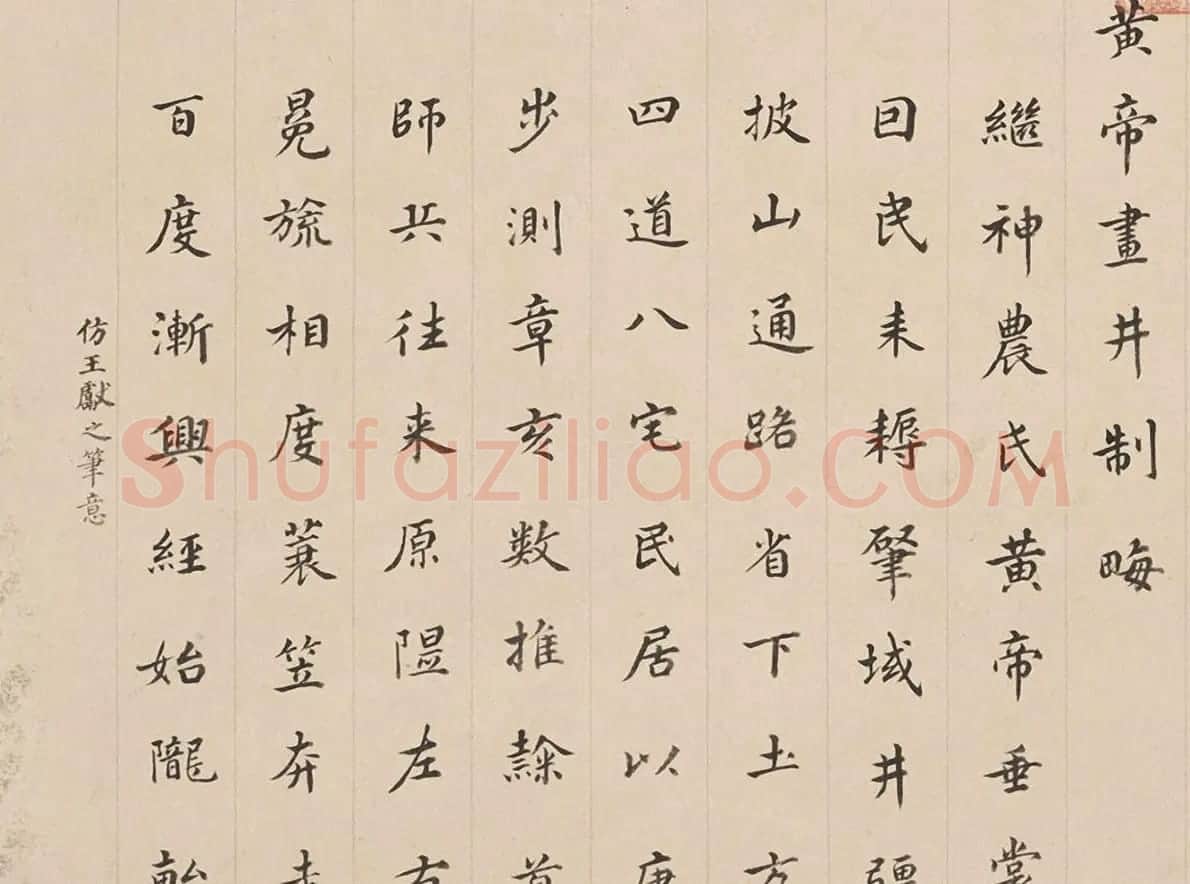 黄帝畫井制畮
繼神農氏黄帝垂裳
回民耒耨肇域井疆
披山通路省下土方
四道八宅民居以康
步測章亥數推隸首
師兵往来原隰左右
冕旒相度蓑笠奔走
百度漸興經始隴畝
仿王獻之筆意
Shufaziliao.COM